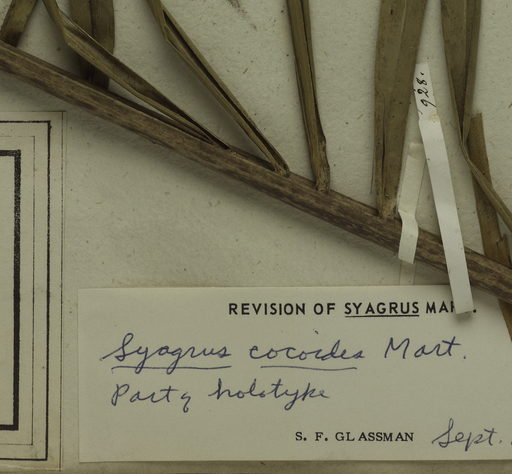 928.
REVISION OF SYAGRUS MAR
Syagrus cocoides Mart.
Part of holotype
S. F. GLASSMAN Sept.